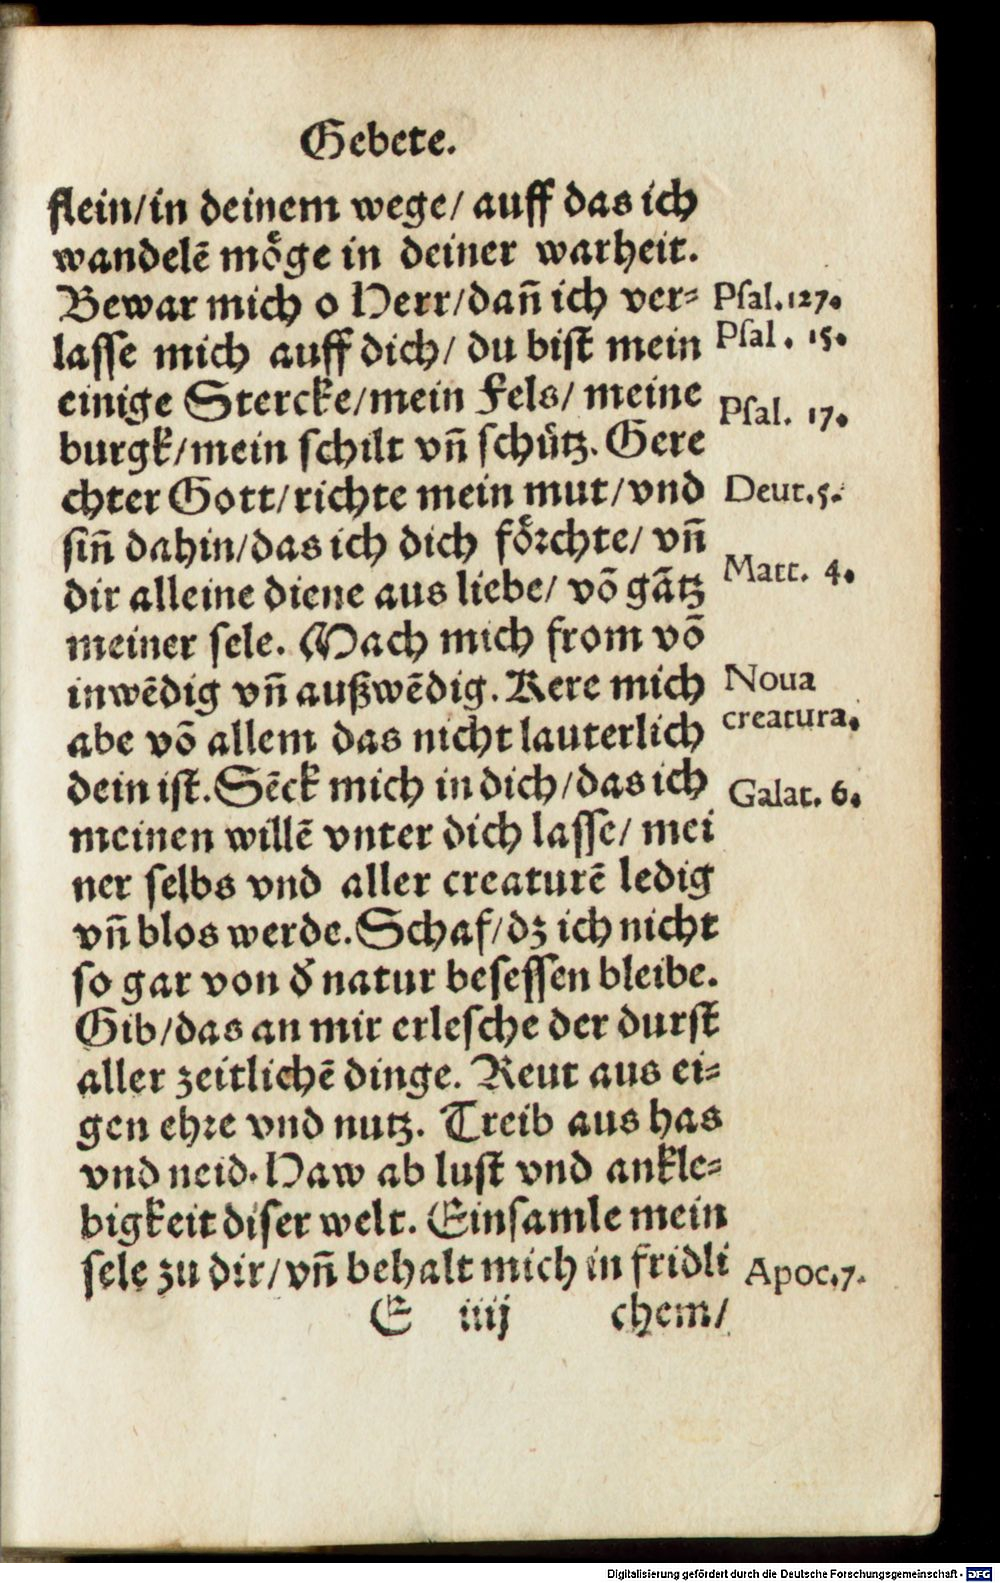 Gebete.
flein/in deinem wege/ auff das ich
wandelē möge in deiner warheit.
Bewar mich o Herr/dañ ich ver-
Psal.127.
lasse mich auff dich/ du bist mein
Psal. 15.
einige Stercke/mein Fels/ meine
Psal. 17.
burgk/mein schilt vñ schütz. Gere
chter Gott/richte mein mut/vnd
Deut.5.
siñ dahin/das ich dich förchte/ vñ
Matt. 4.
dir alleine diene aus liebe/ võ gātz
meiner sele. Mach mich from võ
inwēdig vñ außwēdig. Kere mich
Noua
abe võ allem das nicht lauterlich
creatura.
dein ist. Sēck mich in dich/das ich
Galat. 6.
meinen willē vnter dich lasse/ mei
ner selbs vnd aller creaturē ledig
vñ blos werde. Schaf/dz ich nicht
so gar von ď natur besessen bleibe.
Gib/das an mir erlesche der durst
aller zeitlichē dinge. Reut aus ei-
gen ehre vnd nutz. Treib aus has
vnd neid. Haw ab lust vnd ankle-
bigkeit diser welt. Einsamle mein
sele zu dir/vñ behalt mich in fridli
Apoc.7.
E iiij chem/
Digitalisierung gefördert durch die Deutsche Forschungsgemeinschaft - DFG